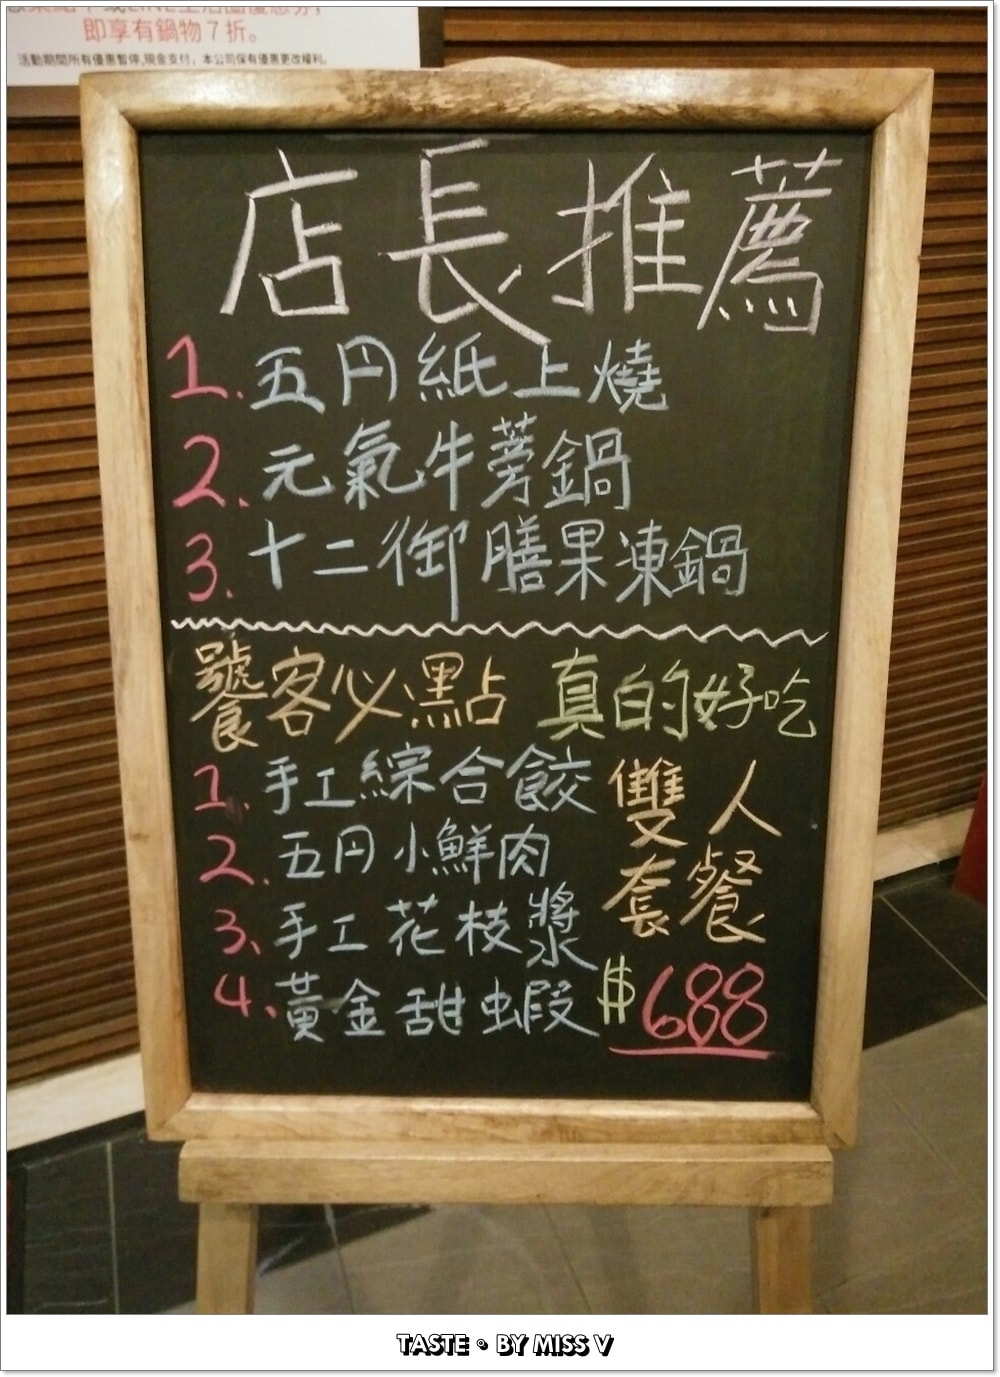 即享有鍋物7折。
活動期間所有優惠暫停,現金支付，本公司保有優惠更改權利。
店長推薦
1. 五円紙上燒
2. 元氣牛蒡鍋
3. 十二御膳果凍鍋
饕客必點 真的好吃
1. 手工綜合餃
2. 五円小鮮肉
3、手工花枝漿
4. 黃金甜蝦
雙人
套餐
$688
TASTE • BY MISS V